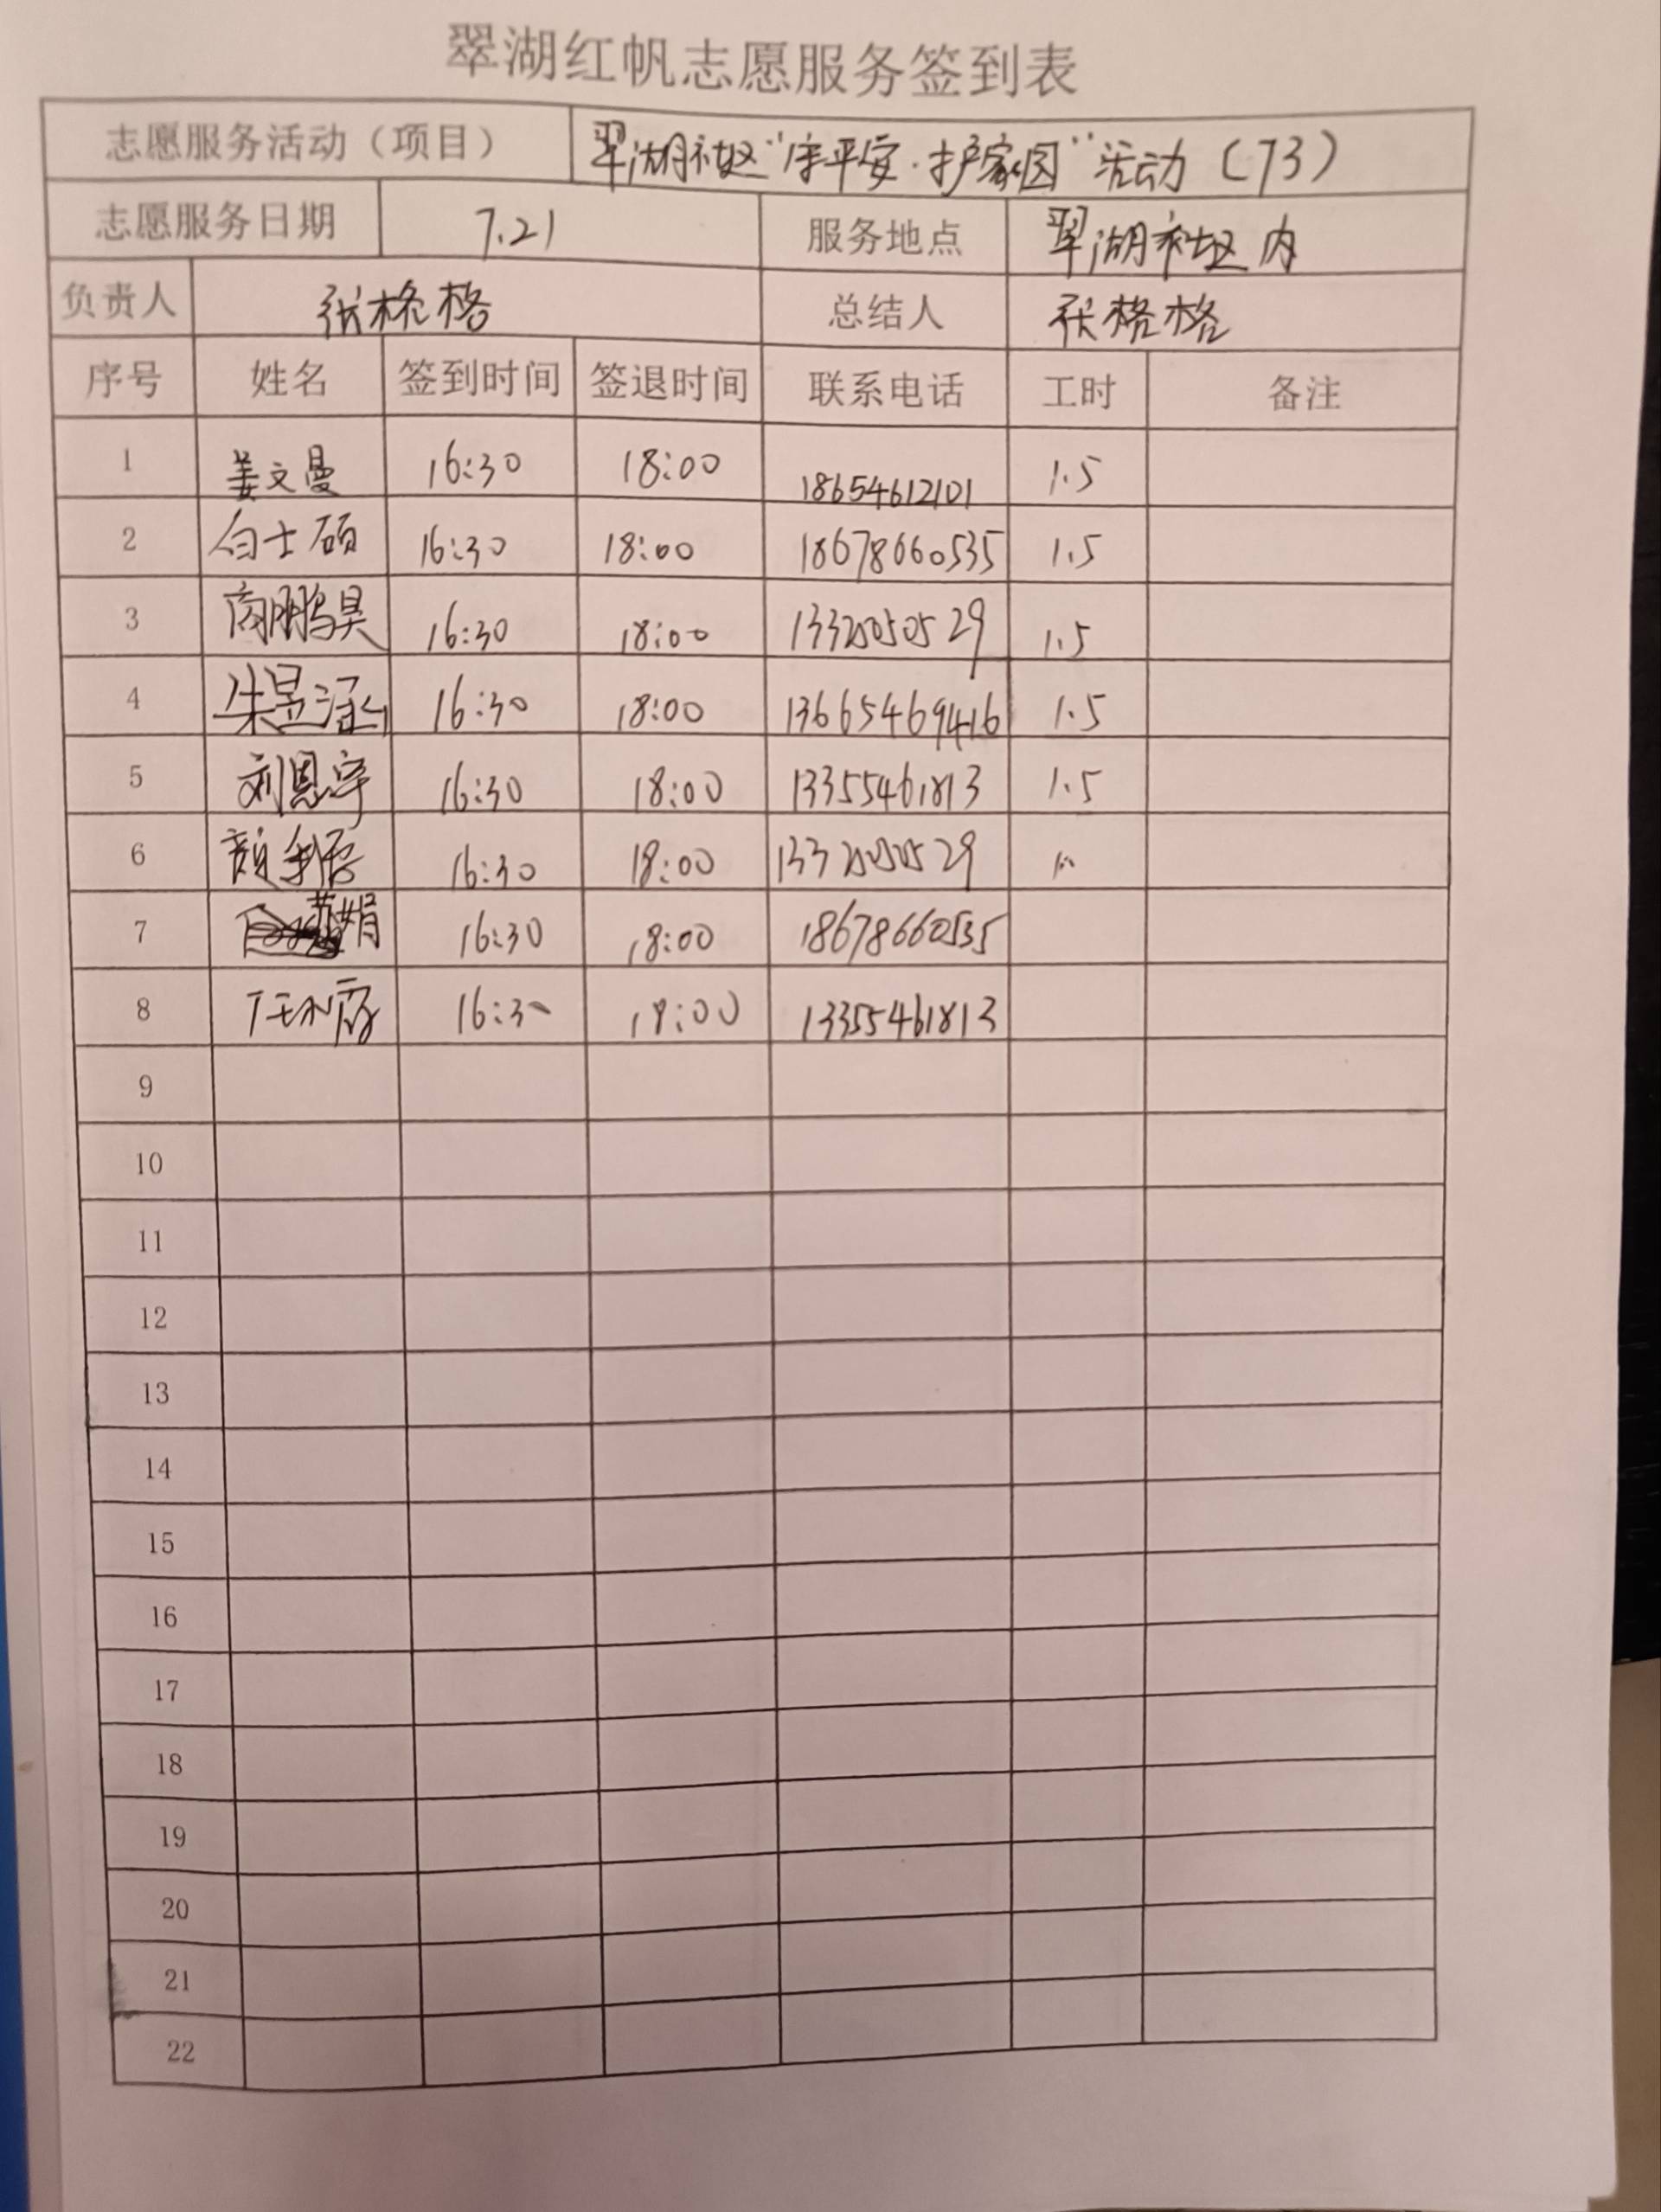 翠湖红帆志愿服务签到表
志愿服务活动（项目） 翠湖社区“守平安·护家园”活动（73）
志愿服务日期 7.21 服务地点 翠湖社区内
负责人 张格格 总结人 张格格
序号 姓名 签到时间 签退时间 联系电话 工时 备注
1 姜文曼 16:30 18:00 18654612101 1.5
2 白士硕 16:30 18:00 18678660535 1.5
3 商鹏昊 16:30 18:00 1.5
4 朱昱涵 16:30 18:00 13665469416 1.5
5 刘恩宇 16:30 18:00 13355461813 1.5
6 16:30 18:00
7 娟 16:30 18:00 18678660535
8 16:30 18:00 13355461813
9
10
11
12
13
14
15
16
17
18
19
20
21
22